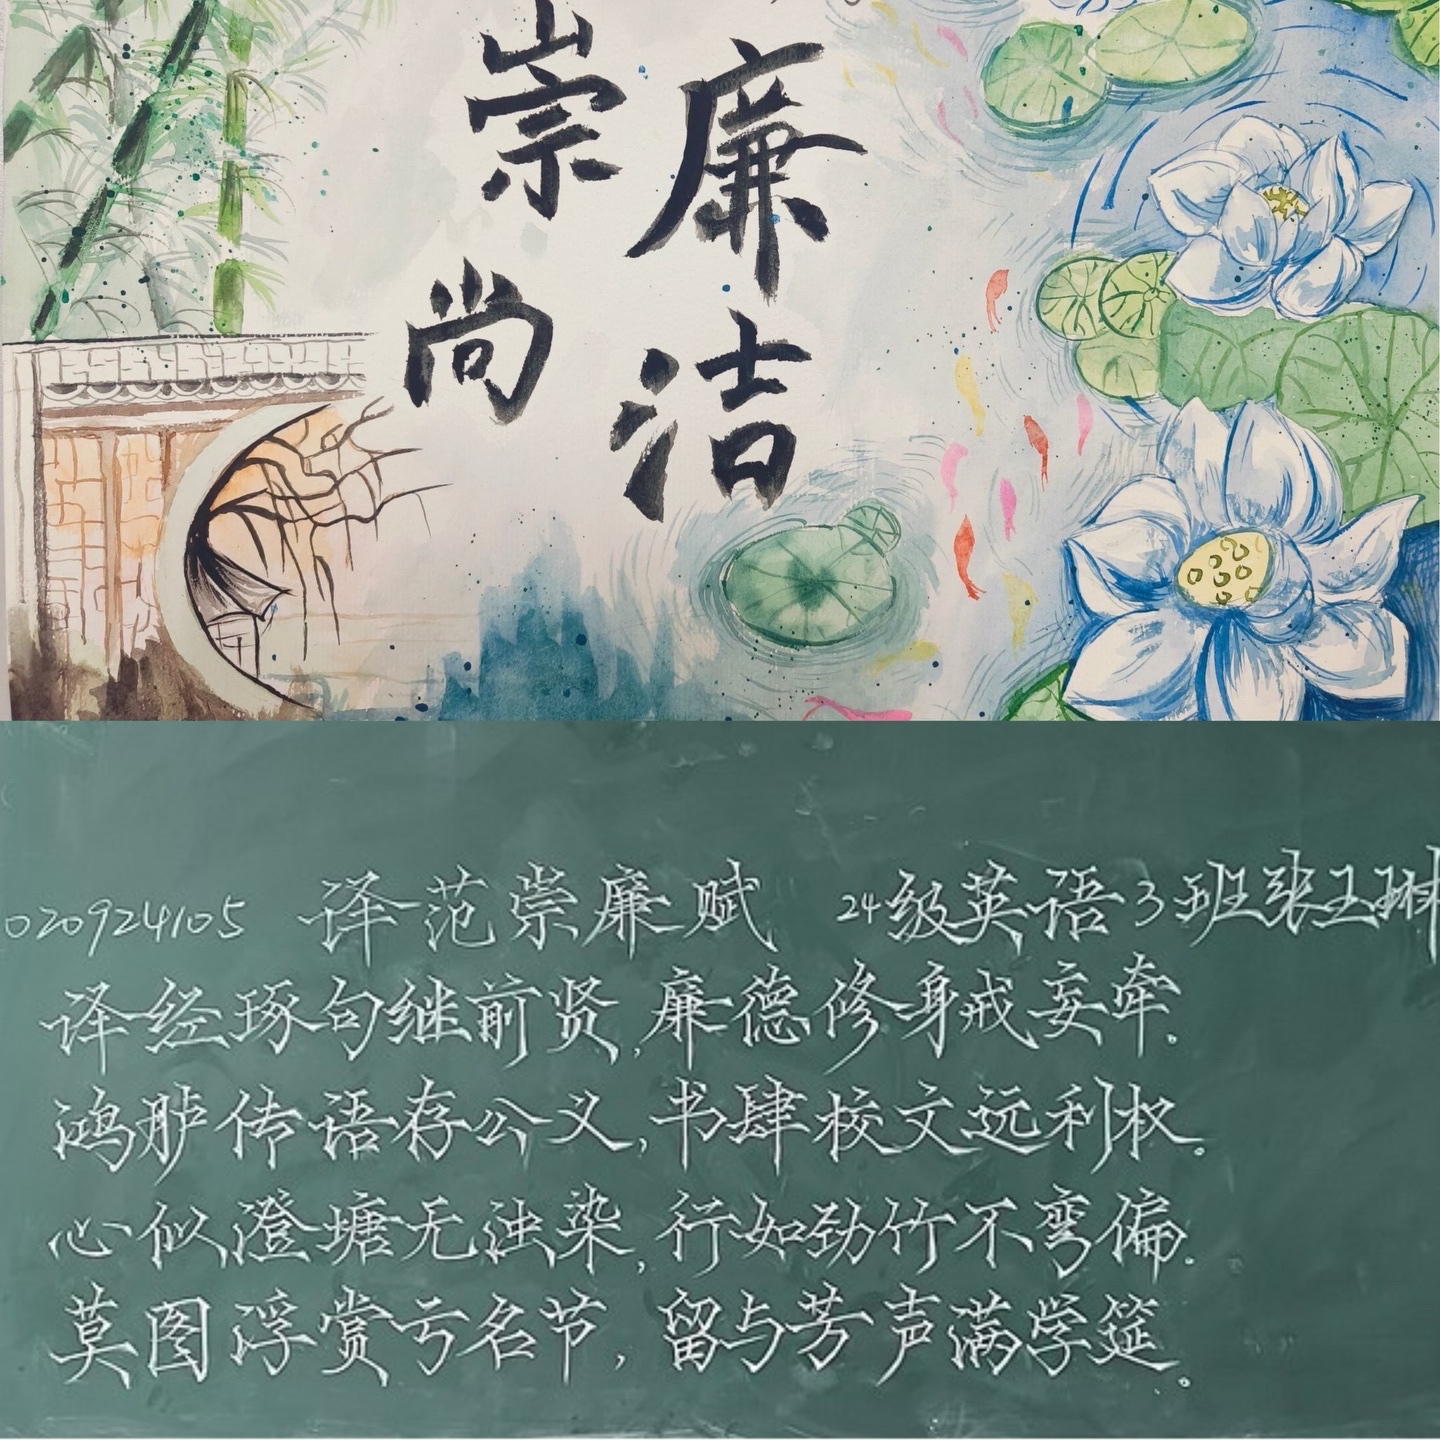 崇尚
廉洁
020924105 译范崇廉赋 24级英语3班张玉琳
译经琢句继前贤,廉德修身戒妄牵.
鸿胪传语存公义,书肆校文远利权.
心似澄塘无浊染,行如劲竹不弯偏.
莫图浮赏亏名节,留与芳声满学筵.